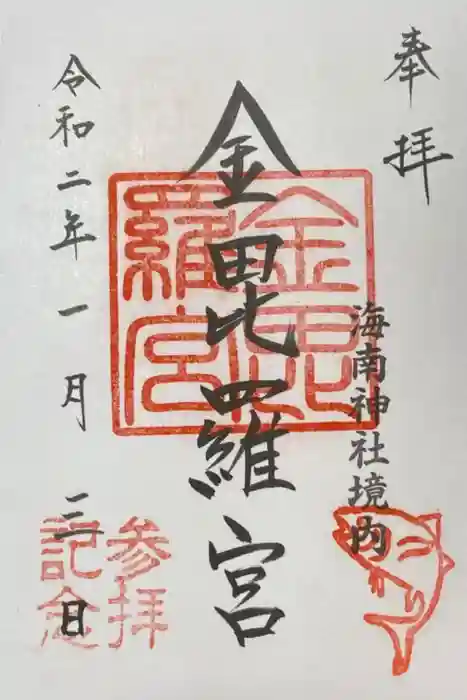 奉拝
海南神社境内
金毘羅宮
金毘羅宮
令和二年一月三日
参拝
記念